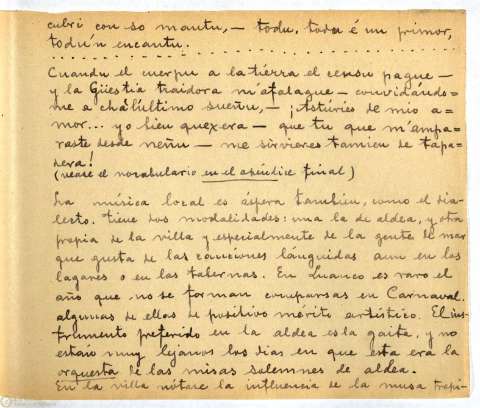 cubri con so mantu,— todu, todu é un primor,
todu'n encantu.
Cuandu el cuerpu a la tierra el censu pague—
y la Güestia traidora m'afalague— convidándo=
me a cháľúltimo sueñu,— ¡Astúries de mio a=
mor... yo bien quexera— que tu que m'ampa=
raste desde neñu— me sirvieres tamien de tapa=
dera!
(vease el vocabulario en el apéndice final)
La música local es áspera tambien, como el dia=
lecto. tiene dos modalidades: una la de aldea, y otra
propia de la villa y especialmente de la gente de mar
que gusta de las canciones lánguidas aun en los
lagares o en las tabernas. En Luanco es raro el
año que no se forman comparsas en Carnaval.
algunas de ellas de positivo mérito artístico. El ins=
trumento preferido en la aldea es la gaita, y no
están muy lejanos los dias en que esta era la
orquesta de las misas solemnes de aldea.
En la villa nótase la influencia de la musa tropi=